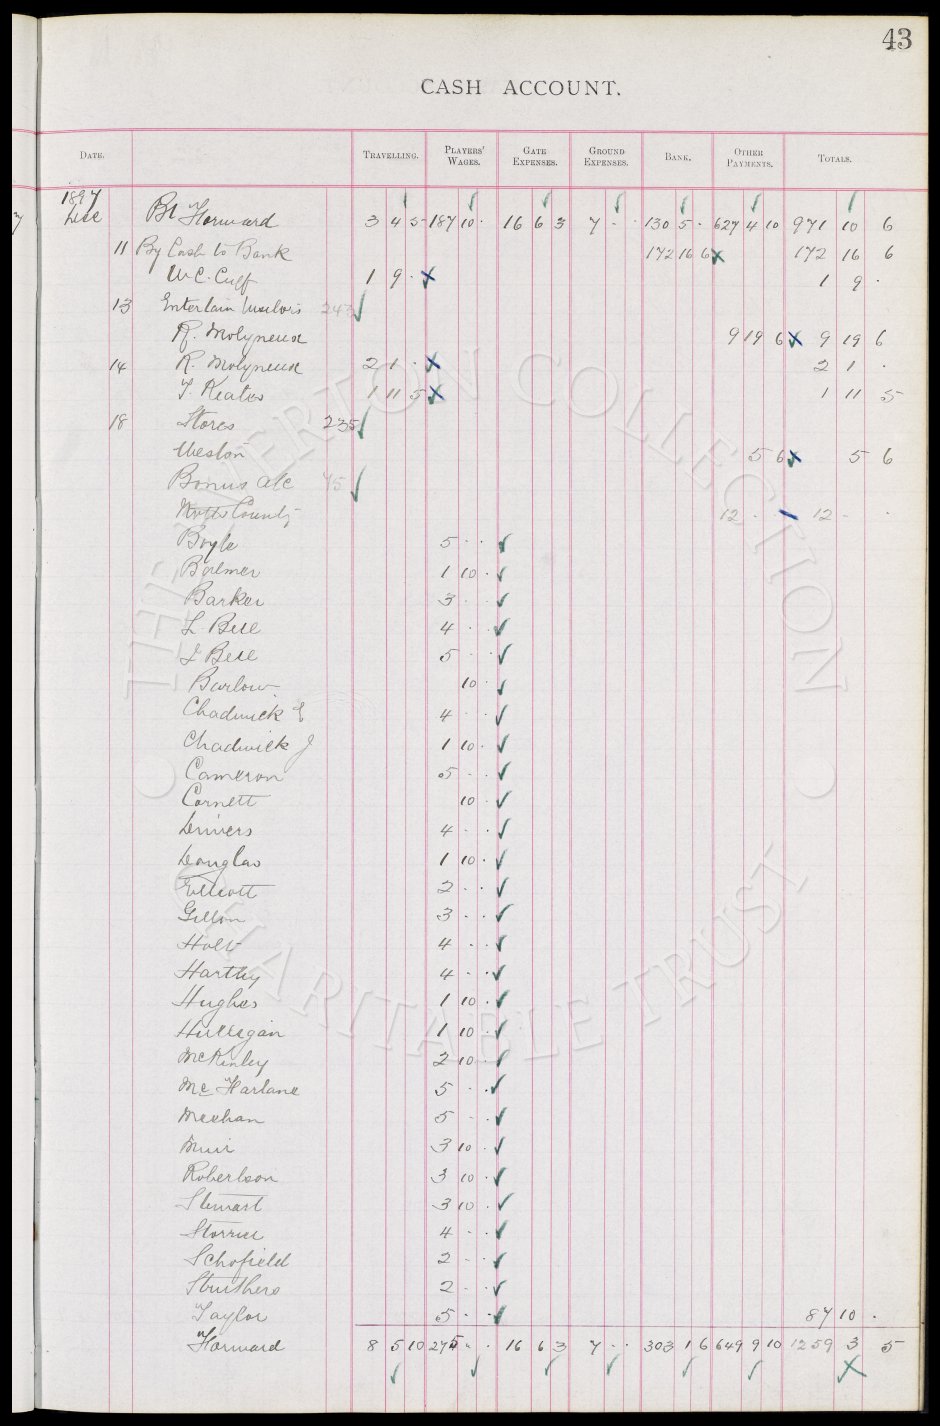 43
CASH ACCOUNT.
DATE. TRAVELLING. PLAYERS' WAGES. GATE EXPENSES. GROUND EXPENSES. BANK. OTHER PAYMENTS. TOTALS.
1897
Dec Bt Forward 3 4 5 187 10 · 16 6 3 7 · · 130 5 · 627 4 10 971 10 6
11 By Cash to Bank 172 16 6 172 16 6
W.C. Cuff 1 9 · 1 9 ·
13 Entertain Visitors 243
R. Molyneux 9 19 6 9 19 6
14 R. Molyneux 2 1 · 2 1 ·
T. Keates 1 11 5 1 11 5
18 Stores 235
Weston 5 6 5 6
Bonus a/c 75
Notts County 12 · · 12 · ·
Boyle 5 · ·
Balmer 1 10 ·
Barker 3 · ·
L. Bell 4 · ·
J Bell 5 · ·
Barlow 10 ·
Chadwick E 4 · ·
Chadwick J 1 10 ·
Cameron 5 · ·
Cornett 10 ·
Divers 4 · ·
Douglas 1 10 ·
Elliott 2 · ·
Gillon 3 · ·
Holt 4 · ·
Hartley 4 · ·
Hughes 1 10 ·
Hulligan 1 10 ·
McKinley 2 10 ·
Mc Farlane 5 · ·
Meehan 5 · ·
Muir 3 10 ·
Robertson 3 10 ·
Stewart 3 10 ·
Storrier 4 · ·
Schofield 2 · ·
Struthers 2 · ·
Taylor 5 · · 87 10 ·
Forward 8 5 10 275 · · 16 6 3 7 · · 303 1 6 649 9 10 1259 3 5
THE EVERTON COLLECTION
CHARITABLE TRUST